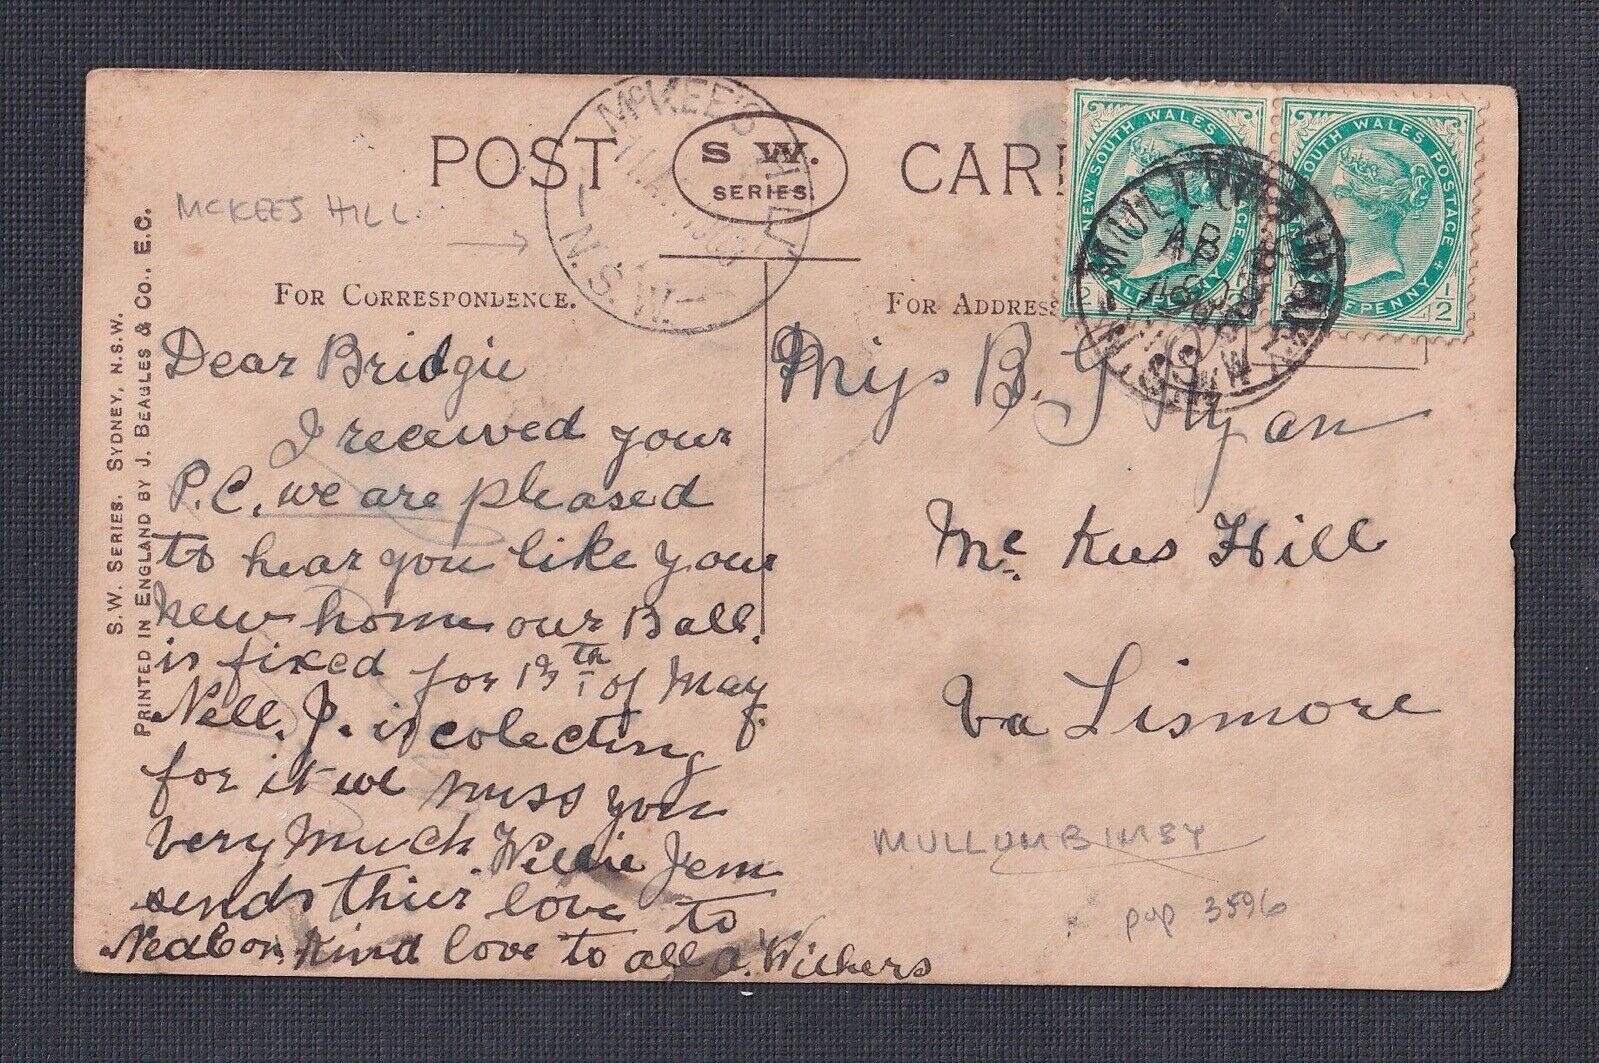 POST S W. SERIES. CARD
McKEE'S HILL
N.S.W.
MCKEES HILL
FOR CORRESPONDENCE.
FOR ADDRESS
S.W. SERIES. SYDNEY, N.S.W.
PRINTED IN ENGLAND BY J. BEAGLES & CO., E.C.
NEW SOUTH WALES POSTAGE
HALFPENNY 1/2
SOUTH WALES POSTAGE
HALFPENNY 1/2
MULLUMBIMBY
Dear Bridgie
I received your
P.C. we are pleased
to hear you like your
new home our Ball.
is fixed for 13th of May
Nell. J. is colecting
for it we miss you
very much Nellie Jem
sends thier love to
Ned Con. Kind love to all
Miss B. J Ryan
Mc Kees Hill
Va Lismore
MULLUMBIMBY
pop 3596